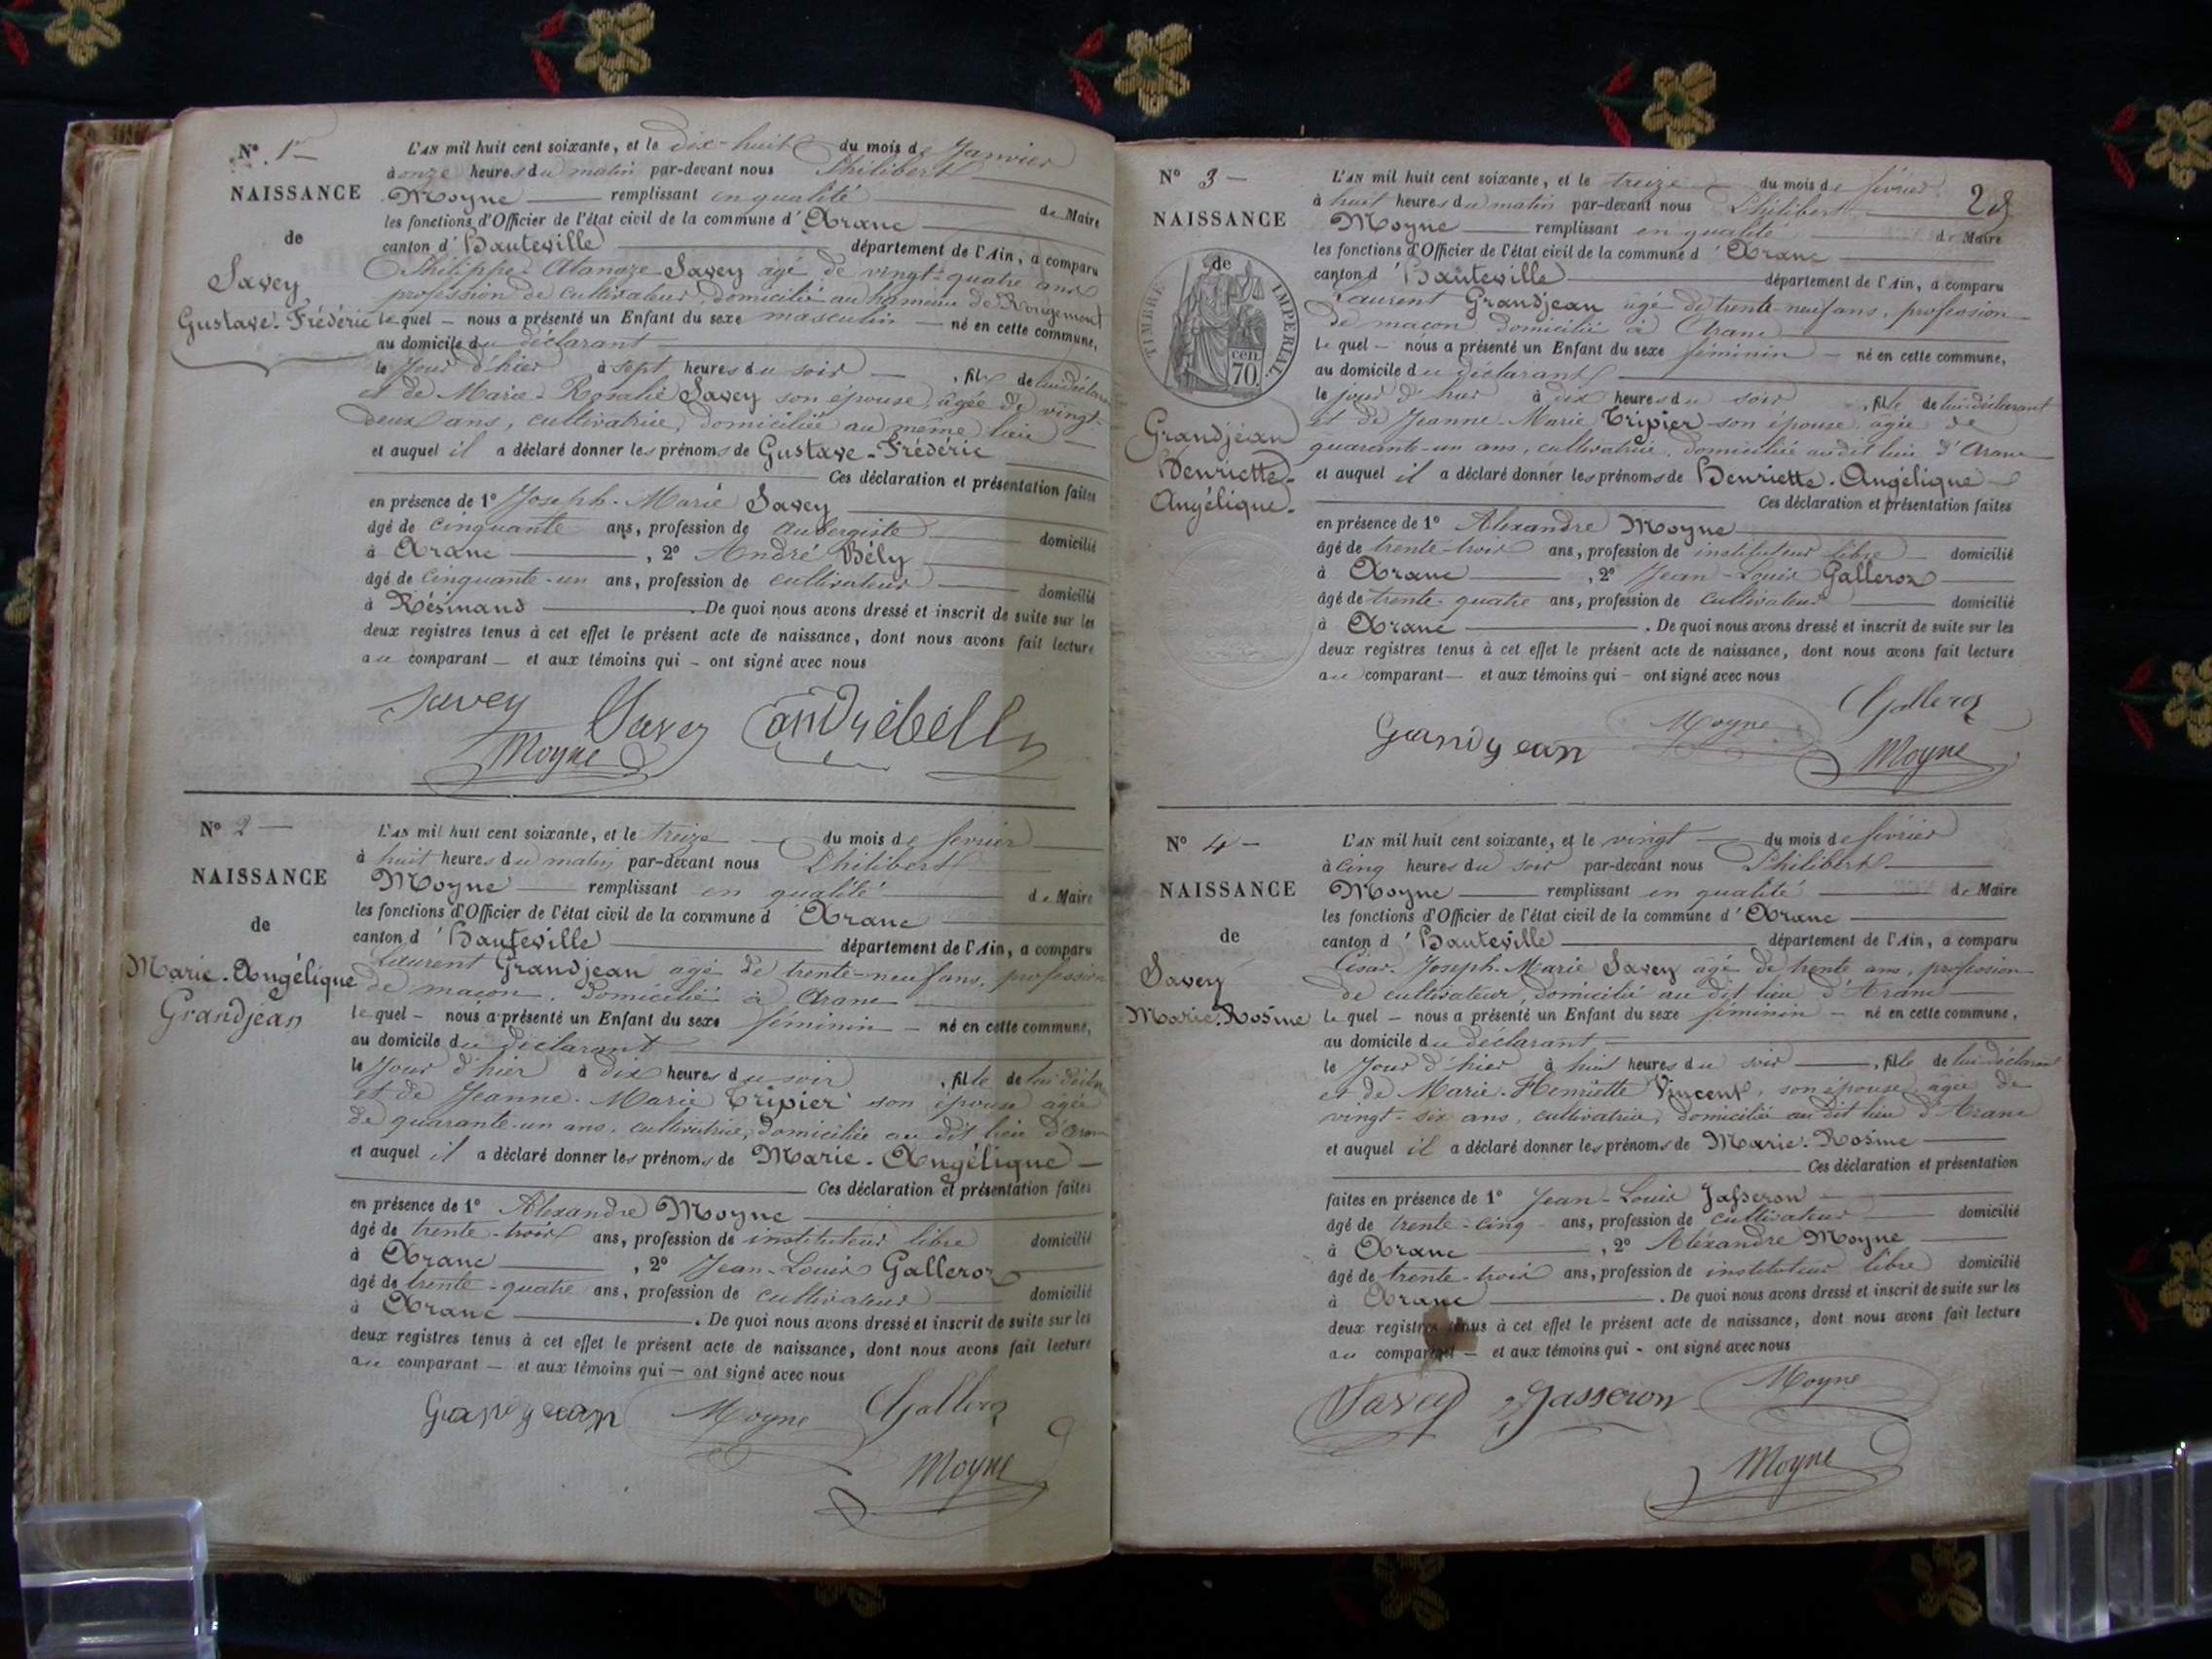 N° 1er
NAISSANCE
de
Savey
Gustave-Frédéric
L'AN mil huit cent soixante, et le dix-huit du mois de Janvier
à onze heures du matin par-devant nous Philibert
Moyne remplissant en qualité de Maire
les fonctions d'Officier de l'état civil de la commune d'Aranc
canton d'Hauteville département de l'Ain, a comparu
Philippe-Atanaze Savey âgé de vingt-quatre ans
profession de cultivateur, domicilié au hameau de Rougemont
le quel – nous a présenté un Enfant du sexe masculin – né en cette commune,
au domicile du déclarant
le Jour d'hier à sept heures du soir, fils de lui déclarant
et de Marie-Rosalie Savey son épouse, âgée de vingt-
deux ans, cultivatrice, domiciliée au même lieu
et auquel il a déclaré donner les prénoms de Gustave-Frédéric
Ces déclaration et présentation faites
en présence de 1° Joseph-Marie Savey
âgé de cinquante ans, profession de aubergiste domicilié
à Aranc, 2° André Bély
âgé de cinquante-un ans, profession de cultivateur domicilié
à Résinand. De quoi nous avons dressé et inscrit de suite sur les
deux registres tenus à cet effet le présent acte de naissance, dont nous avons fait lecture
au comparant – et aux témoins qui – ont signé avec nous
Savey Savey andrébelly
Moyne
N° 2
NAISSANCE
de
Marie-Angélique
Grandjean
L'AN mil huit cent soixante, et le treize du mois de février
à huit heures du matin par-devant nous Philibert
Moyne remplissant en qualité de Maire
les fonctions d'Officier de l'état civil de la commune d'Aranc
canton d'Hauteville département de l'Ain, a comparu
Laurent Grandjean âgé de trente-neuf ans, profession
de maçon, domicilié à Aranc
le quel – nous a présenté un Enfant du sexe féminin – né en cette commune,
au domicile du déclarant
le Jour d'hier à dix heures du soir, fille de lui décla
et de Jeanne-Marie Tripier son épouse âgée
de quarante-un ans, cultivatrice, domiciliée au dit lieu d'Aranc
et auquel il a déclaré donner les prénoms de Marie-Angélique
Ces déclaration et présentation faites
en présence de 1° Alexandre Moyne
âgé de trente-trois ans, profession de instituteur libre domicilié
à Aranc, 2° Jean-Louis Galleroz
âgé de trente-quatre ans, profession de cultivateur domicilié
à Aranc. De quoi nous avons dressé et inscrit de suite sur les
deux registres tenus à cet effet le présent acte de naissance, dont nous avons fait lecture
au comparant – et aux témoins qui – ont signé avec nous
Grandjean Moyne Galleroz
Moyne
N° 3
NAISSANCE
de
TIMBRE IMPERIAL
cen.
70
Grandjean
Henriette-
Angélique.
L'AN mil huit cent soixante, et le treize du mois de février
à huit heures du matin par-devant nous Philibert
Moyne remplissant en qualité de Maire
les fonctions d'Officier de l'état civil de la commune d'Aranc
canton d'Hauteville département de l'Ain, a comparu
Laurent Grandjean âgé de trente-neuf ans, profession
de maçon domicilié à Aranc
le quel – nous a présenté un Enfant du sexe féminin – né en cette commune,
au domicile du déclarant
le jour d'hier à dix heures du soir, fille de lui déclarant
et de Jeanne-Marie Tripier son épouse âgée de
quarante-un ans, cultivatrice, domiciliée audit lieu d'Aranc
et auquel il a déclaré donner les prénoms de Henriette-Angélique
Ces déclaration et présentation faites
en présence de 1° Alexandre Moyne
âgé de trente-trois ans, profession de instituteur libre domicilié
à Aranc, 2° Jean-Louis Galleroz
âgé de trente-quatre ans, profession de cultivateur domicilié
à Aranc. De quoi nous avons dressé et inscrit de suite sur les
deux registres tenus à cet effet le présent acte de naissance, dont nous avons fait lecture
au comparant – et aux témoins qui – ont signé avec nous
Grandjean Moyne Galleroz
Moyne
N° 4
NAISSANCE
de
Savey
Marie-Rosine
L'AN mil huit cent soixante, et le vingt du mois de février
à cinq heures du soir par-devant nous Philibert
Moyne remplissant en qualité de Maire
les fonctions d'Officier de l'état civil de la commune d'Aranc
canton d'Hauteville département de l'Ain, a comparu
César-Joseph-Marie Savey âgé de trente ans, profession
de cultivateur, domicilié au dit lieu d'Aranc
le quel – nous a présenté un Enfant du sexe féminin – né en cette commune,
au domicile du déclarant
le Jour d'hier à huit heures du soir, fille de lui déclarant
et de Marie-Henriette Vincent, son épouse, âgée de
vingt-six ans, cultivatrice, domiciliée au dit lieu d'Aranc
et auquel il a déclaré donner les prénoms de Marie-Rosine
Ces déclaration et présentation
faites en présence de 1° Jean-Louis Jasseron
âgé de trente-cinq ans, profession de cultivateur domicilié
à Aranc, 2° Alexandre Moyne
âgé de trente-trois ans, profession de instituteur libre domicilié
à Aranc. De quoi nous avons dressé et inscrit de suite sur les
deux registres tenus à cet effet le présent acte de naissance, dont nous avons fait lecture
au comparant – et aux témoins qui – ont signé avec nous
Savey Jasseron Moyne
Moyne